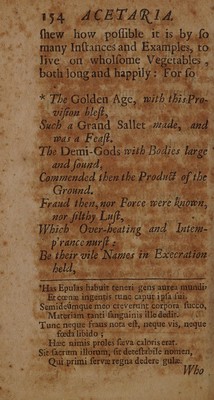 154 ACETARIA.
shew how possible it is by so
many Instances and Examples, to
live on wholsome Vegetables,
both long and happily: For so
* The Golden Age, with this Pro-
vision blest,
Such a Grand Sallet made, and
was a Feast.
The Demi-Gods with Bodies large
and sound,
Commended then the Product of the
Ground.
Fraud then, nor Force were known,
nor filthy Lust,
Which Over-heating and Intem-
p'rance nurst:
Be their vile Names in Execration
held,
* Has Epulas habuit teneri gens aurea mundi
Et cœnæ ingentis tunc caput ipsa fui.
Semideûmque meo creverunt corpora succo,
Materiam tanti sanguinis ille dedit.
Tunc neque fraus nota est, neque vis, neque
fœda libido;
Hæc nimis proles sæva caloris erat.
Sit sacrum illorum, sit detestabile nomen,
Qui primi servæ regna dedere gulæ.
Who